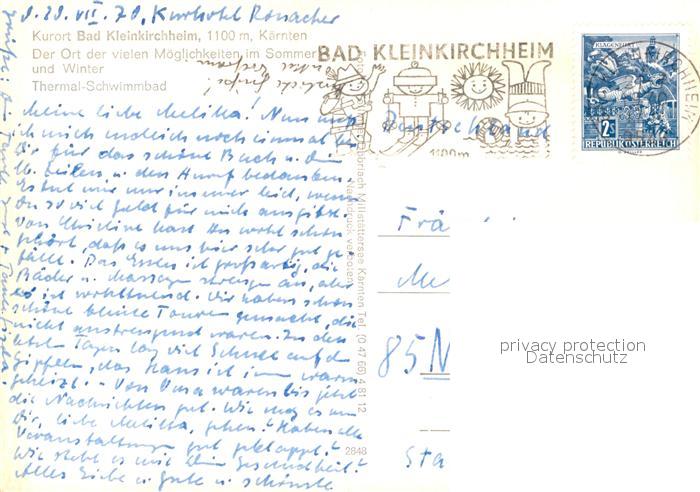 d. 20. VII. 70, Kurhotel Ronacher
Kurort Bad Kleinkirchheim, 1100 m, Kärnten
Der Ort der vielen Möglichkeiten im Sommer
und Winter
Thermal-Schwimmbad
Meine liebe Melitta! Nun muß
ich mich zugleich noch einmal bei
Dir für das schöne Buch u. die
lb. Zeilen, u. den Anruf bedanken.
Es tut mir nur immer leid, wenn
Du so viel Geld für mich ausgibst.
Von Christine hast Du wohl schon
gehört, daß es uns hier sehr gut ge-
fällt. Das Essen ist großartig, die
Bäder u. Massagen strengen an, aber
es ist wohltuend. Wir haben schon
schöne kleine Touren gemacht, die
nicht anstrengend waren. In den
letzten Tagen lag viel Schnee auf den
Gipfeln, das Haus ist warm
geheizt. - Von waren bis jetzt
die Nachrichten gut. Wie mag es nun
Dir, liebe Melitta, gehen? Haben alle
Veranstaltungen gut geklappt?
Wie steht es mit Deiner Gesundheit?
Alles Liebe u. Gute u. schönste
BAD KLEINKIRCHHEIM
1100m
KLAGENFURT
2S
REPUBLIK ÖSTERREICH
Deutschland
Frä
Me
85 N
Sta
Millstättersee Kärnten Tel. (0 47 66) 4 81 12
Nachdruck verboten
2848
privacy protection
Datenschutz